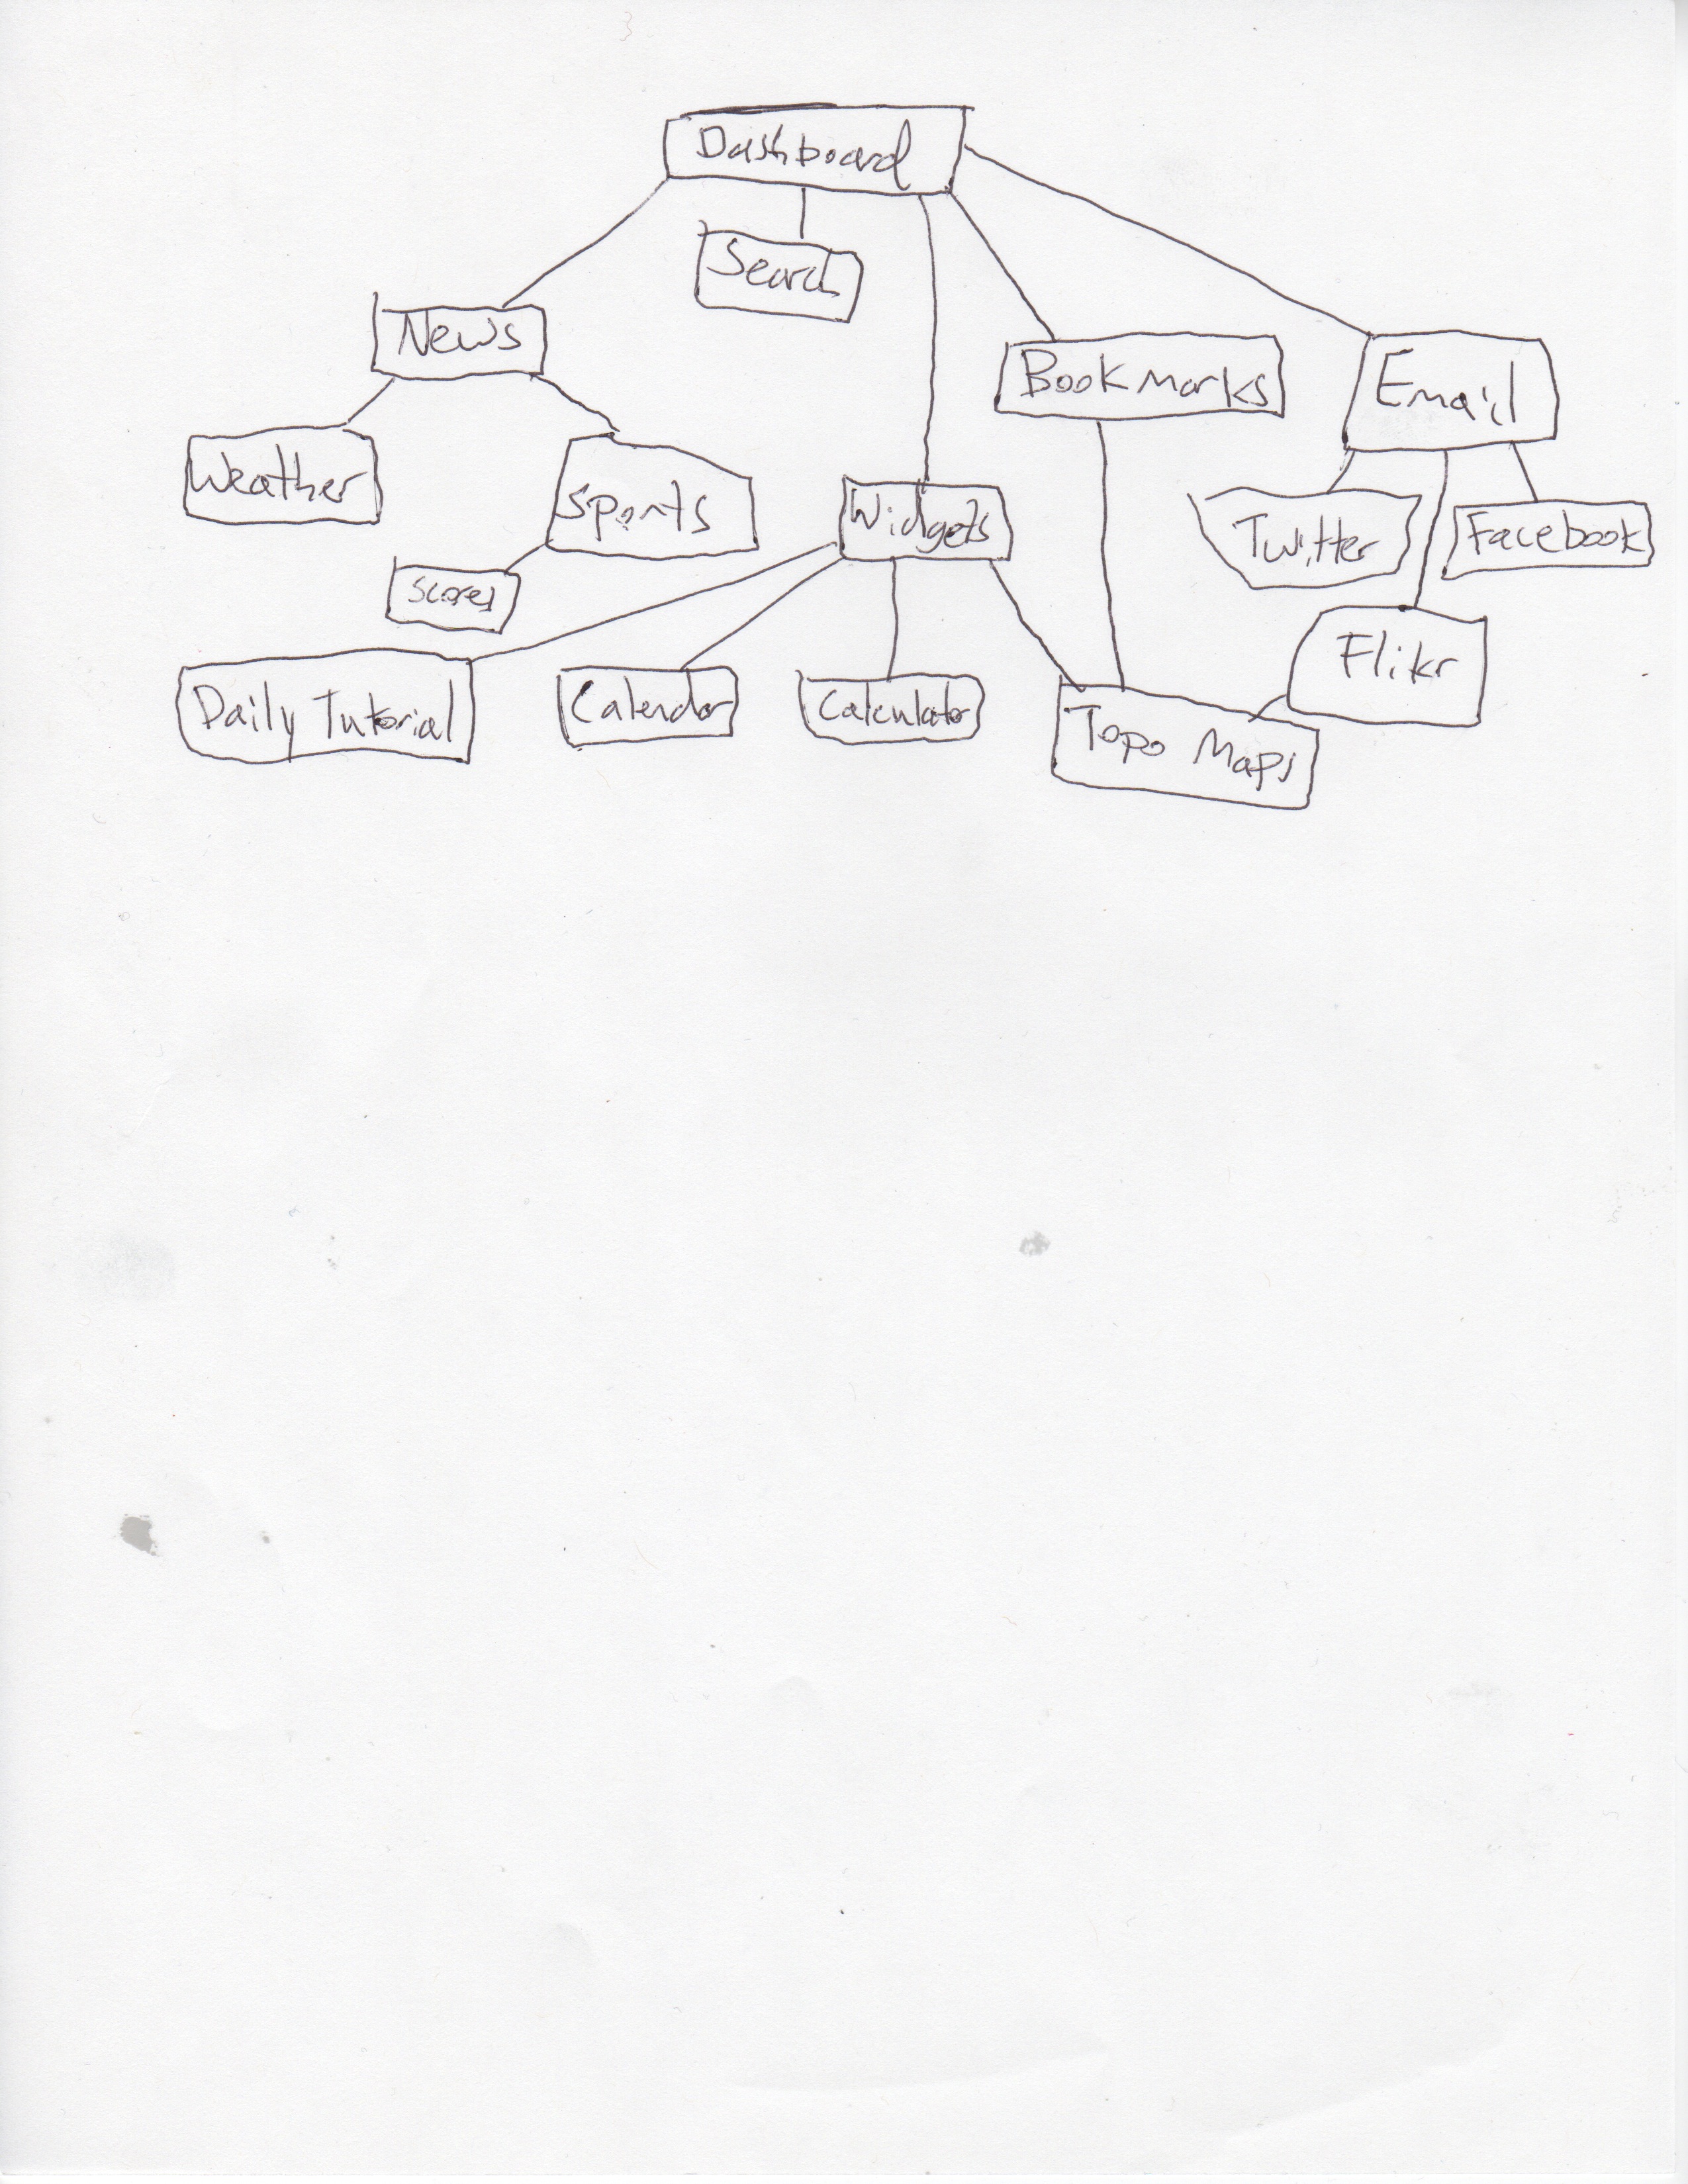 Dashboard
Search
News
Bookmarks
Email
Weather
Sports
Widgets
Twitter
Facebook
Scores
Flikr
Daily Tutorial
Calendar
Calculator
Topo Maps